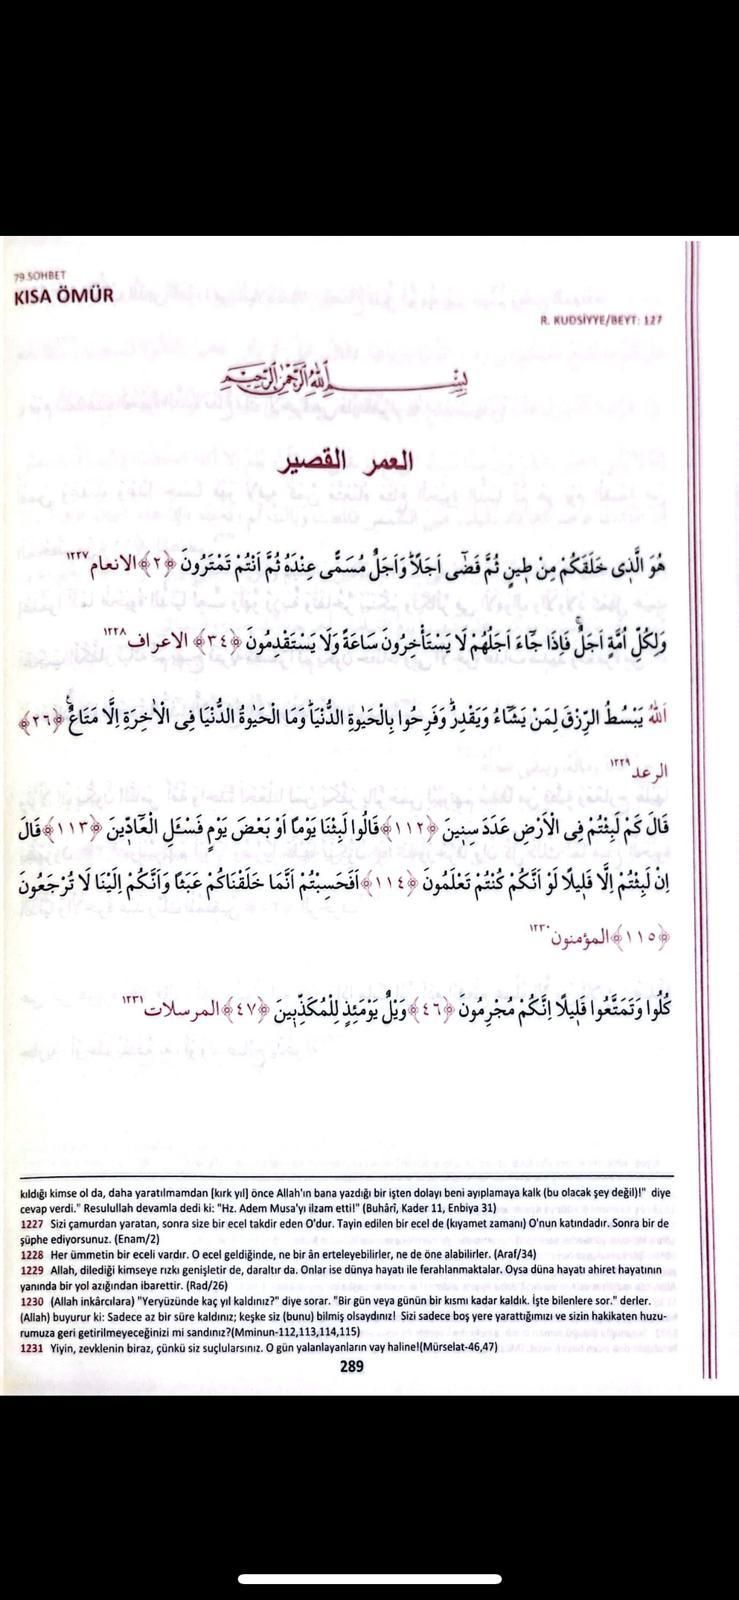 79.SOHBET
KISA ÖMÜR
R. KUDSİYYE/BEYT: 127
بِسْمِ اللّٰهِ الرَّحْمٰنِ الرَّحِيمِ
العمر القصير
هُوَ الَّذ۪ى خَلَقَكُمْ مِنْ ط۪ينٍ ثُمَّ قَضٰٓى اَجَلًاۜ وَاَجَلٌ مُسَمًّى عِنْدَهُ ثُمَّ اَنْتُمْ تَمْتَرُونَ ﴿٢﴾ الانعام ١٢٢٧
وَلِكُلِّ اُمَّةٍ اَجَلٌۚ فَاِذَا جَٓاءَ اَجَلُهُمْ لَا يَسْتَأْخِرُونَ سَاعَةً وَلَا يَسْتَقْدِمُونَ ﴿٣٤﴾ الاعراف ١٢٢٨
اَللّٰهُ يَبْسُطُ الرِّزْقَ لِمَنْ يَشَٓاءُ وَيَقْدِرُۜ وَفَرِحُوا بِالْحَيٰوةِ الدُّنْيَاۜ وَمَا الْحَيٰوةُ الدُّنْيَا فِى الْاٰخِرَةِ اِلَّا مَتَاعٌ۟ ﴿٢٦﴾
الرعد ١٢٢٩
قَالَ كَمْ لَبِثْتُمْ فِى الْاَرْضِ عَدَدَ سِن۪ينَ ﴿١١٢﴾ قَالُوا لَبِثْنَا يَوْمًا اَوْ بَعْضَ يَوْمٍ فَسْـَٔلِ الْعَٓادّ۪ينَ ﴿١١٣﴾ قَالَ
اِنْ لَبِثْتُمْ اِلَّا قَل۪يلًا لَوْ اَنَّكُمْ كُنْتُمْ تَعْلَمُونَ ﴿١١٤﴾ اَفَحَسِبْتُمْ اَنَّمَا خَلَقْنَاكُمْ عَبَثًا وَاَنَّكُمْ اِلَيْنَا لَا تُرْجَعُونَ
﴿١١٥﴾ المؤمنون ١٢٣٠
كُلُوا وَتَمَتَّعُوا قَل۪يلًا اِنَّكُمْ مُجْرِمُونَ ﴿٤٦﴾ وَيْلٌ يَوْمَئِذٍ لِلْمُكَذِّب۪ينَ ﴿٤٧﴾ المرسلات ١٢٣١
kıldığı kimse ol da, daha yaratılmamdan [kırk yıl] önce Allah'ın bana yazdığı bir işten dolayı beni ayıplamaya kalk (bu olacak şey değil)!" diye
cevap verdi." Resulullah devamla dedi ki: "Hz. Adem Musa'yı ilzam etti!" (Buhârî, Kader 11, Enbiya 31)
1227 Sizi çamurdan yaratan, sonra size bir ecel takdir eden O'dur. Tayin edilen bir ecel de (kıyamet zamanı) O'nun katındadır. Sonra bir de
şüphe ediyorsunuz. (Enam/2)
1228 Her ümmetin bir eceli vardır. O ecel geldiğinde, ne bir ân erteleyebilirler, ne de öne alabilirler. (Araf/34)
1229 Allah, dilediği kimseye rızkı genişletir de, daraltır da. Onlar ise dünya hayatı ile ferahlanmaktalar. Oysa düna hayatı ahiret hayatının
yanında bir yol azığından ibarettir. (Rad/26)
1230 (Allah inkârcılara) "Yeryüzünde kaç yıl kaldınız?" diye sorar. "Bir gün veya günün bir kısmı kadar kaldık. İşte bilenlere sor." derler.
(Allah) buyurur ki: Sadece az bir süre kaldınız; keşke siz (bunu) bilmiş olsaydınız! Sizi sadece boş yere yarattığımızı ve sizin hakikaten huzu-
rumuza geri getirilmeyeceğinizi mi sandınız?(Mminun-112,113,114,115)
1231 Yiyin, zevklenin biraz, çünkü siz suçlularsınız. O gün yalanlayanların vay haline!(Mürselat-46,47)
289